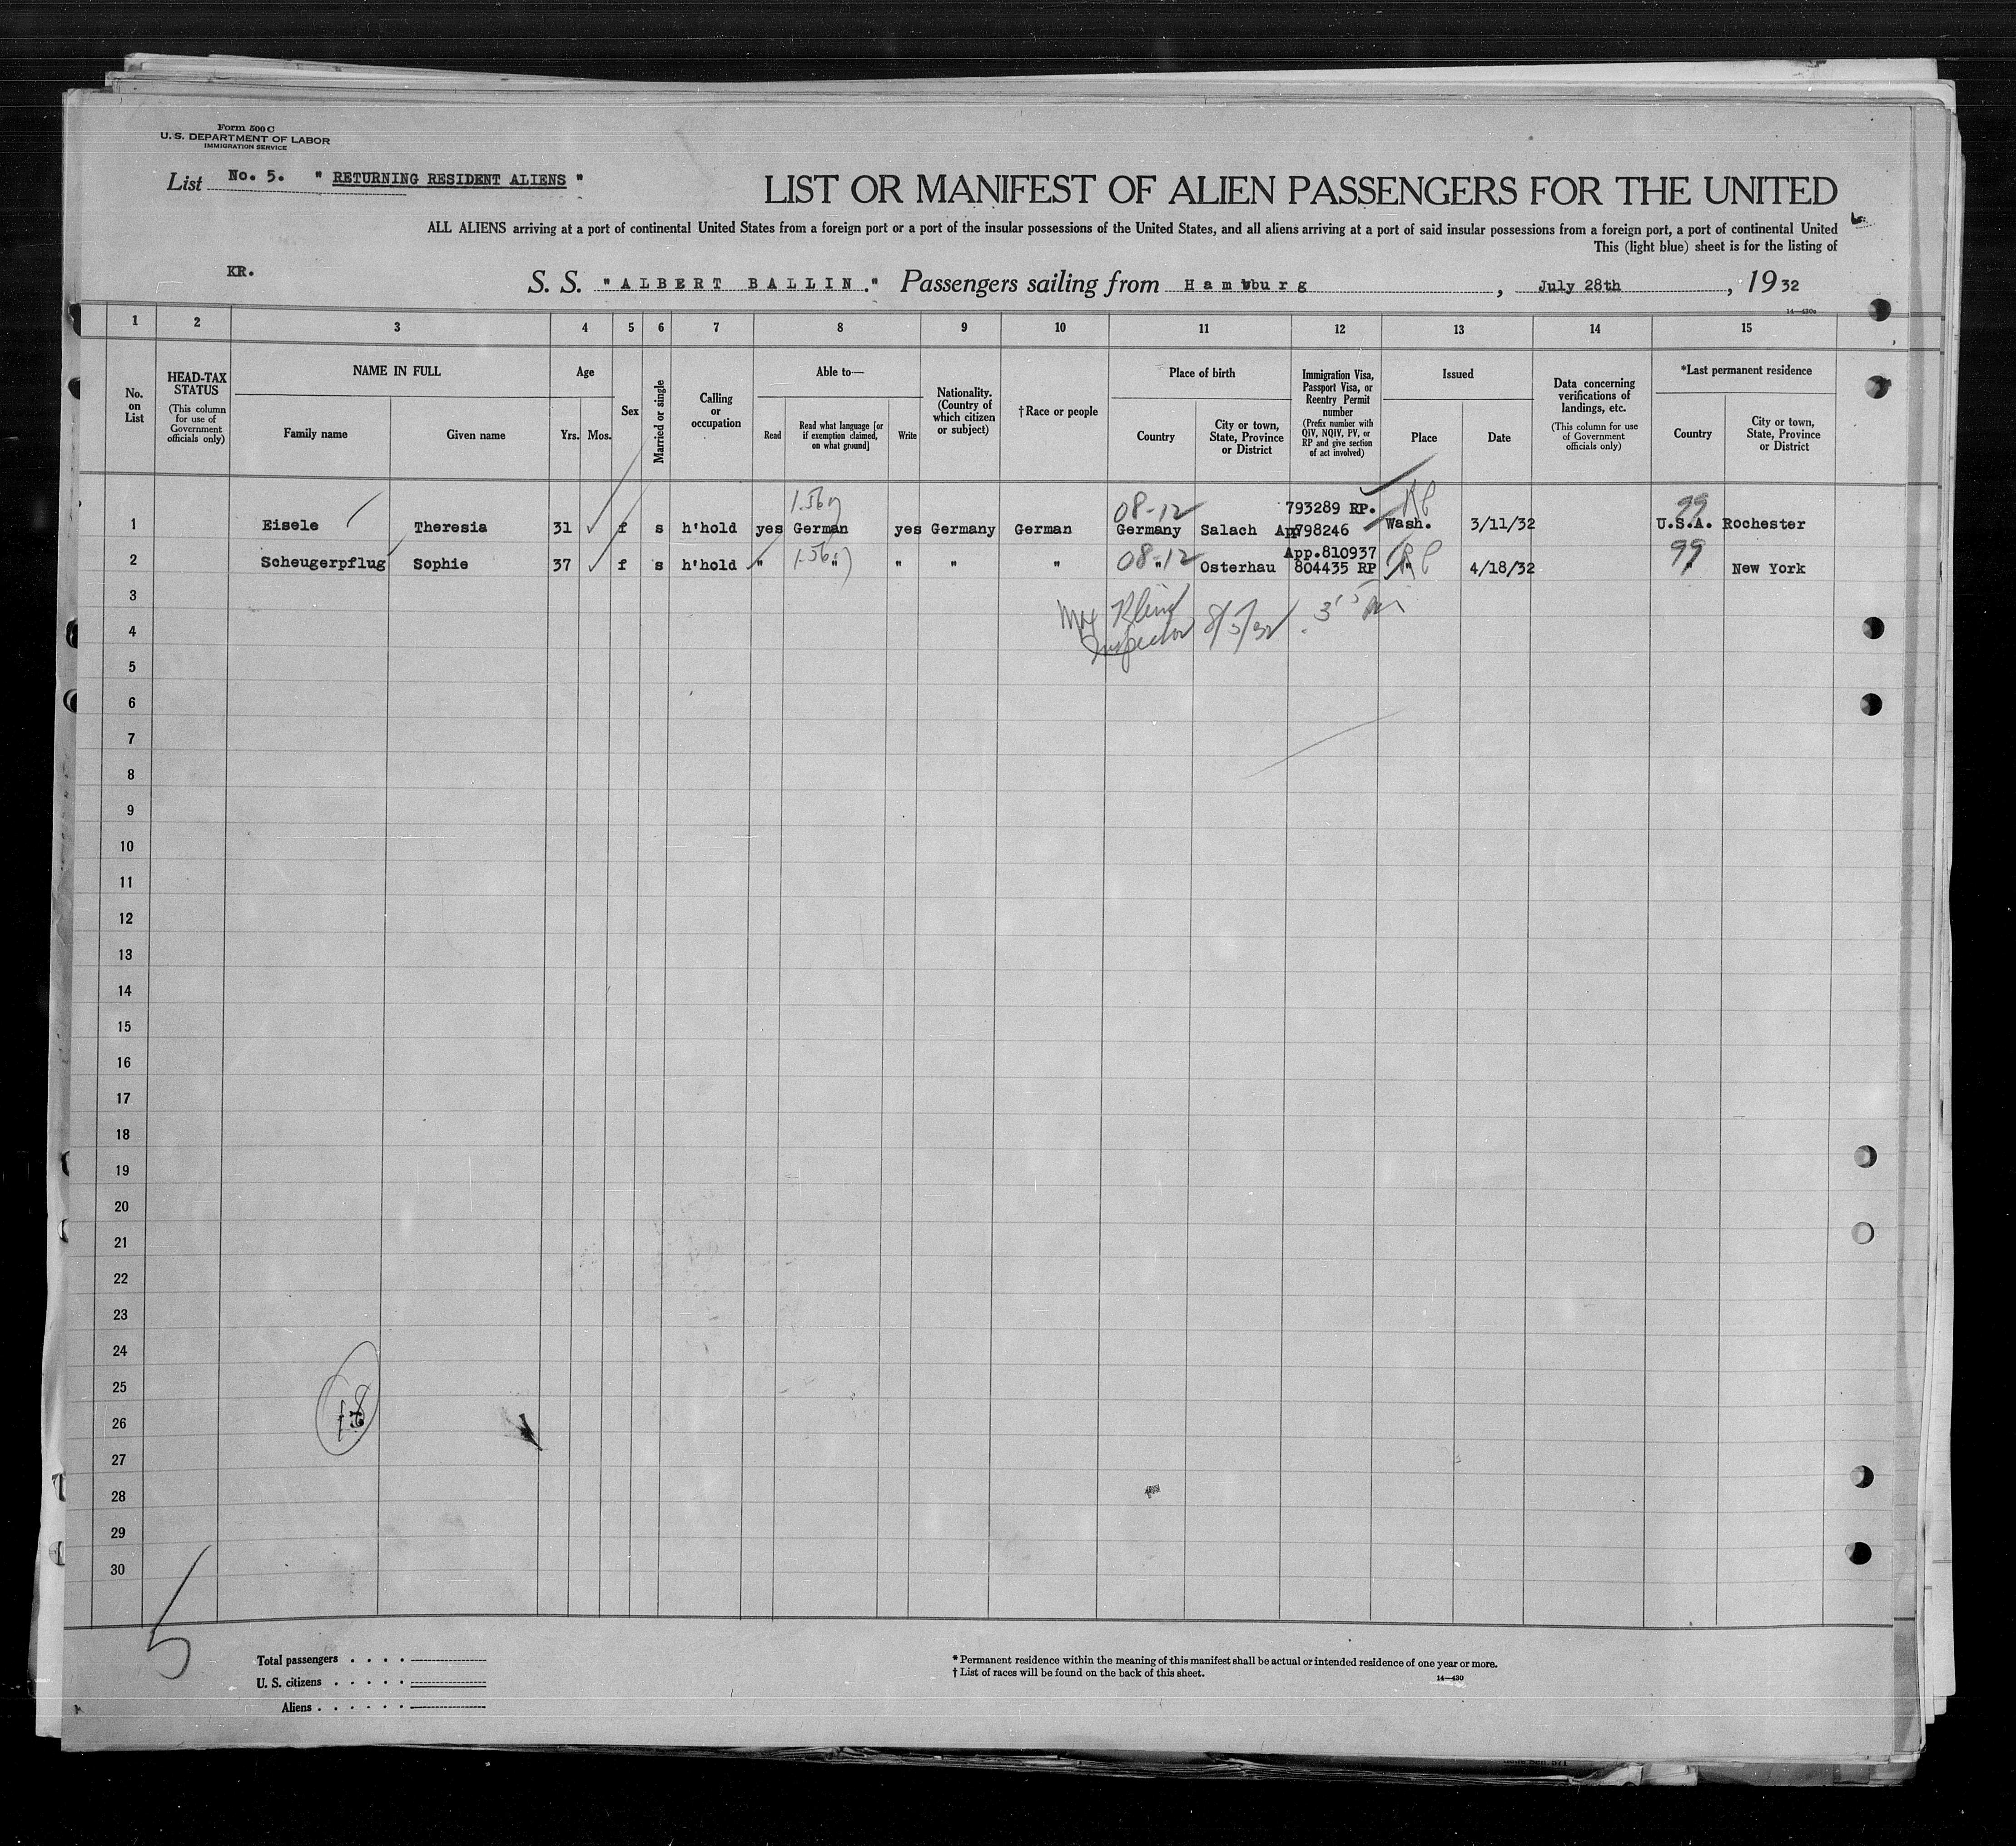 Form 500 C
U. S. DEPARTMENT OF LABOR
IMMIGRATION SERVICE
List No. 5. " RETURNING RESIDENT ALIENS "
LIST OR MANIFEST OF ALIEN PASSENGERS FOR THE UNITED
ALL ALIENS arriving at a port of continental United States from a foreign port or a port of the insular possessions of the United States, and all aliens arriving at a port of said insular possessions from a foreign port, a port of continental United
This (light blue) sheet is for the listing of
KR.
S. S. "ALBERT BALLIN." Passengers sailing from Hamburg, July 28th, 1932
14—430a
1 2 3 4 5 6 7 8 9 10 11 12 13 14 15
No. on List
HEAD-TAX STATUS
(This column for use of Government officials only)
NAME IN FULL
Family name
Given name
Age
Yrs. Mos.
Sex
Married or single
Calling or occupation
Able to—
Read
Read what language [or if exemption claimed, on what ground]
Write
Nationality. (Country of which citizen or subject)
† Race or people
Place of birth
Country
City or town, State, Province or District
Immigration Visa, Passport Visa, or Reentry Permit number
(Prefix number with QIV, NQIV, PV, or RP and give section of act involved)
Issued
Place
Date
Data concerning verifications of landings, etc.
(This column for use of Government officials only)
*Last permanent residence
Country
City or town, State, Province or District
08-12 793289 RP. 99
1 Eisele Theresia 31 f s h'hold yes German yes Germany German Germany Salach App798246 Wash. 3/11/32 U.S.A. Rochester
08-12 App.810937 99
2 Scheugerpflug Sophie 37 f s h'hold " " " " " " Osterhau 804435 RP " 4/18/32 " New York
3
Inspector 8/5/32
4
5
6
7
8
9
10
11
12
13
14
15
16
17
18
19
20
21
22
23
24
25
26
27
28
29
30
5
Total passengers
U. S. citizens
Aliens
* Permanent residence within the meaning of this manifest shall be actual or intended residence of one year or more.
† List of races will be found on the back of this sheet.
14—430